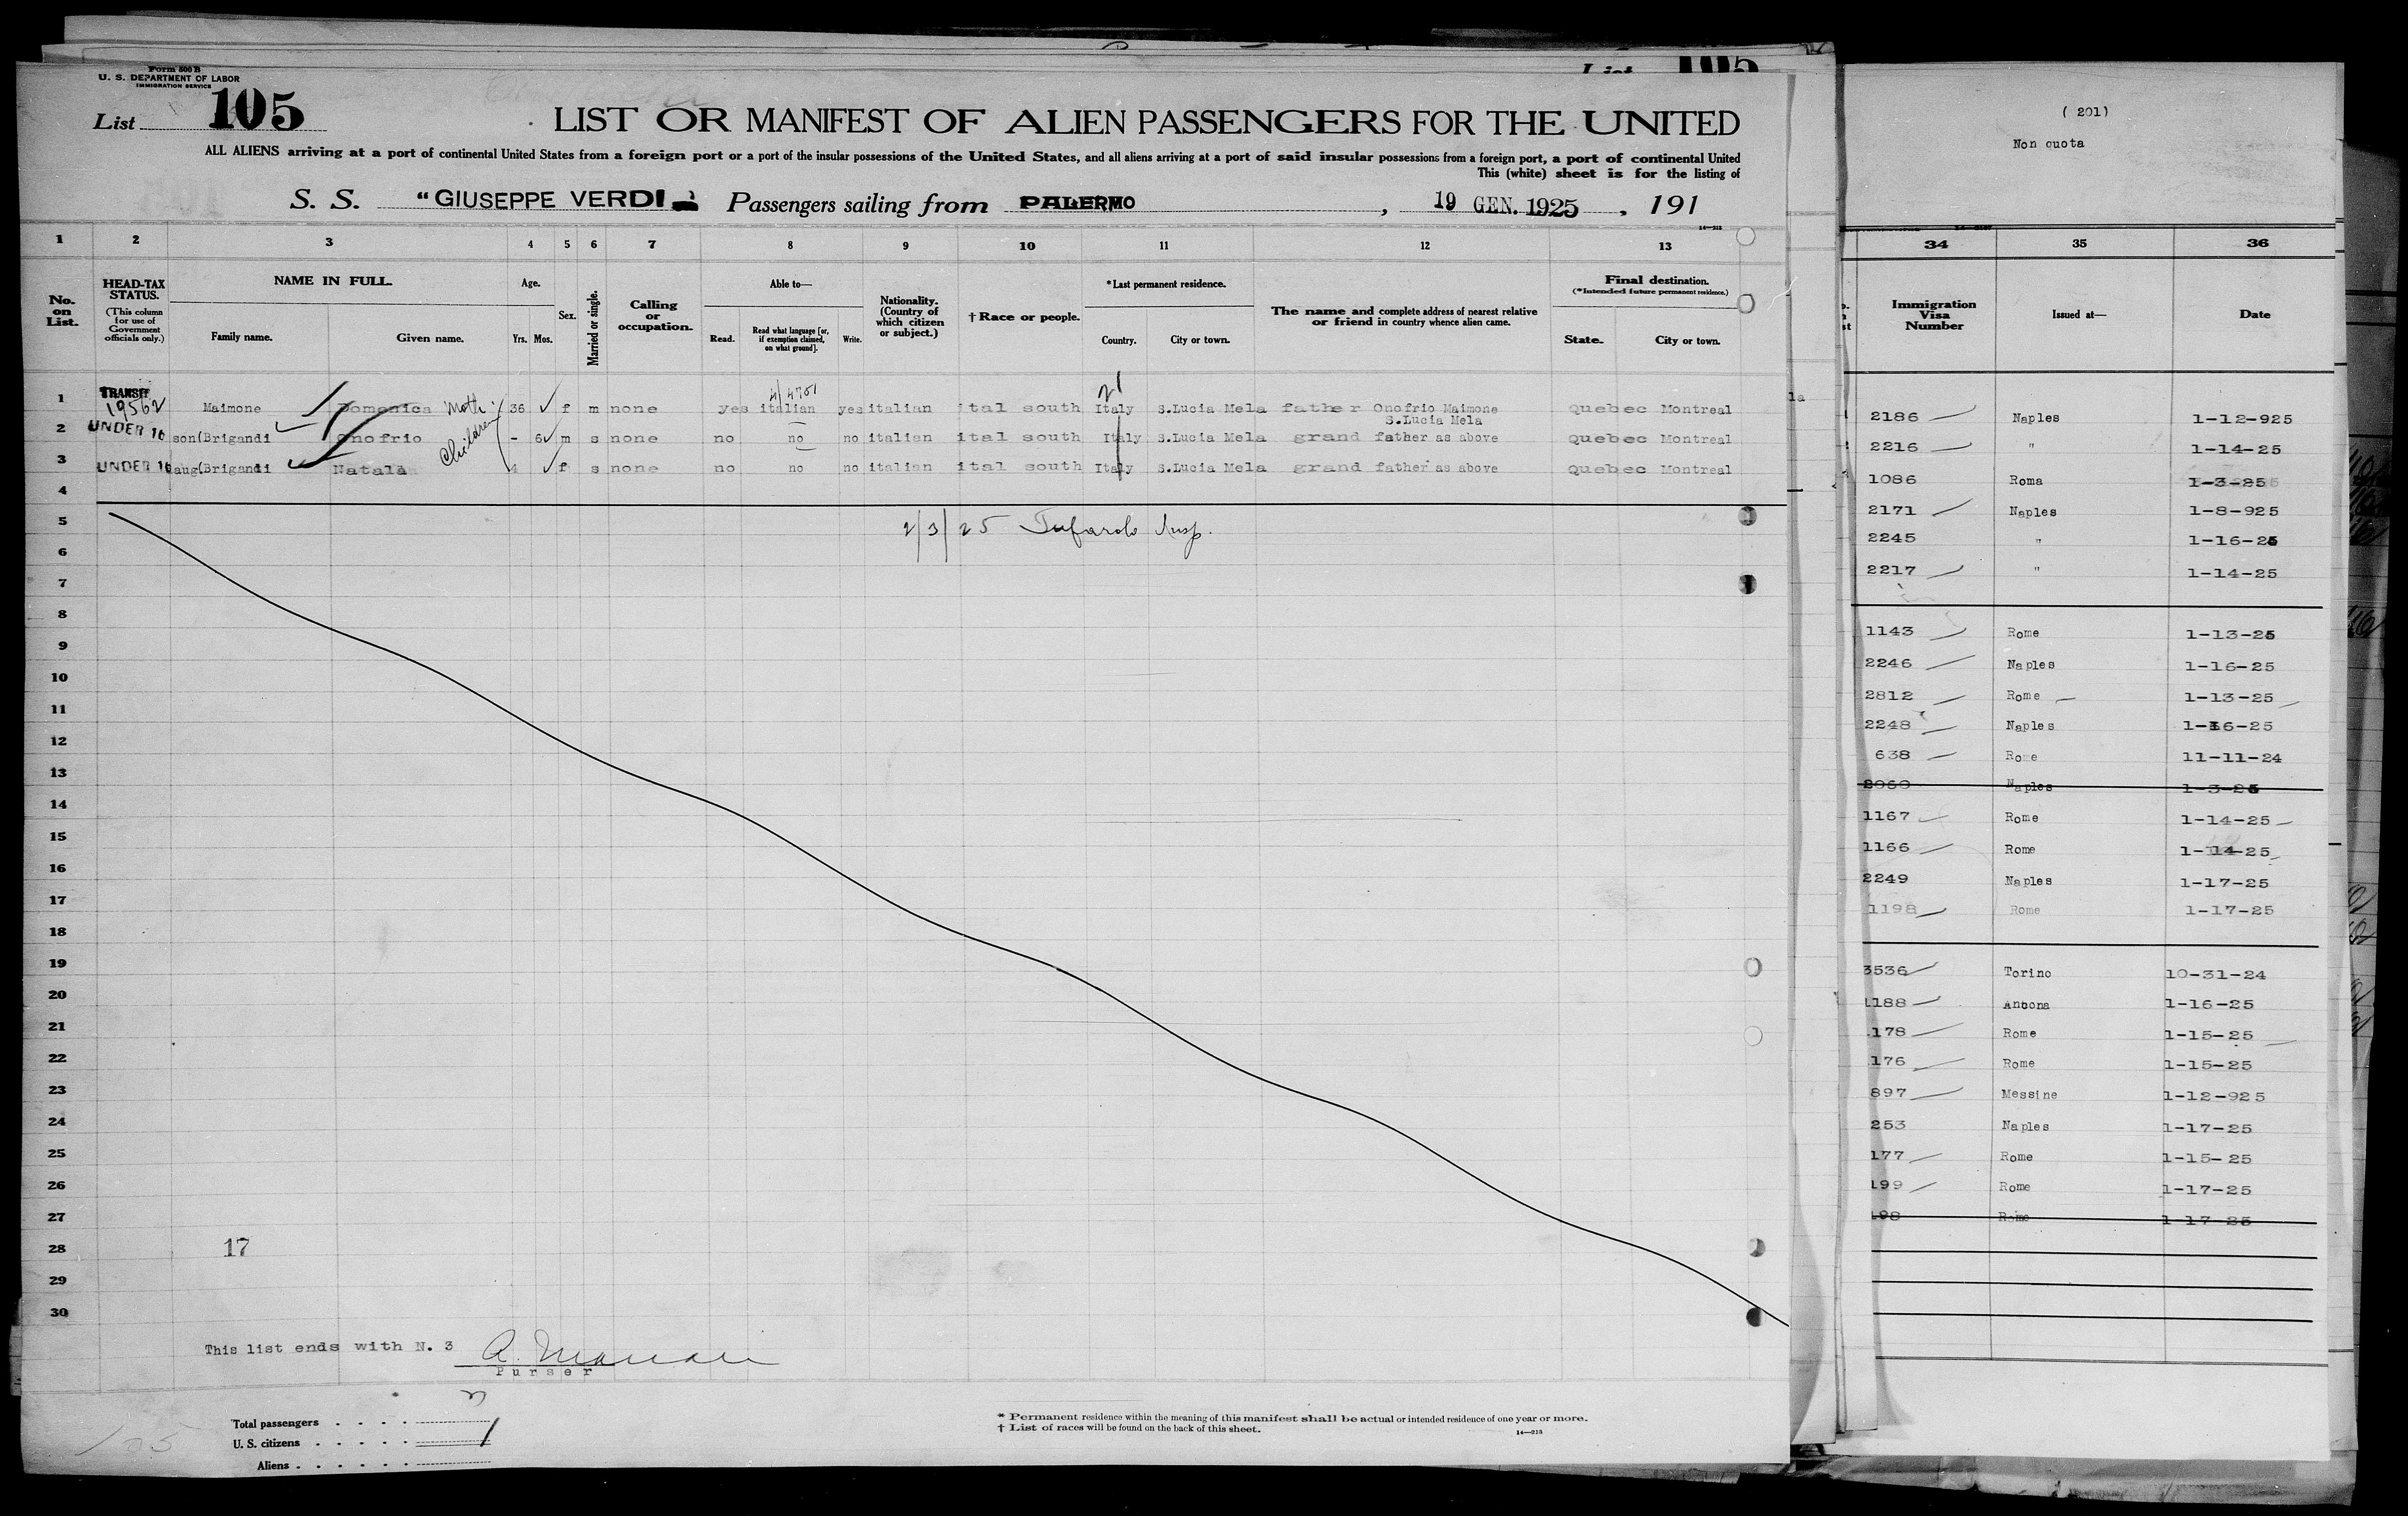 Form 500 B
U. S. DEPARTMENT OF LABOR
IMMIGRATION SERVICE
List 105
List 105
LIST OR MANIFEST OF ALIEN PASSENGERS FOR THE UNITED
ALL ALIENS arriving at a port of continental United States from a foreign port or a port of the insular possessions of the United States, and all aliens arriving at a port of said insular possessions from a foreign port, a port of continental United
This (white) sheet is for the listing of
S. S. "GIUSEPPE VERDI" Passengers sailing from PALERMO, 19 GEN. 1925, 191
14—213
1 2 3 4 5 6 7 8 9 10 11 12 13
No. on List.
HEAD-TAX STATUS. (This column for use of Government officials only.)
NAME IN FULL.
Family name. Given name.
Age.
Yrs. Mos.
Sex.
Married or single.
Calling or occupation.
Able to—
Read. Read what language [or, if exemption claimed, on what ground]. Write.
Nationality. (Country of which citizen or subject.)
† Race or people.
*Last permanent residence.
Country. City or town.
The name and complete address of nearest relative or friend in country whence alien came.
Final destination. (*Intended future permanent residence.)
State. City or town.
1 TRANSIT 19562 Maimone Domenica Moth 36 f m none yes italian yes italian ital south Italy S.Lucia Mela father Onofrio Maimone Quebec Montreal
S.Lucia Mela
2 UNDER 16 son(Brigandi Onofrio Children - 6 m s none no no no italian ital south Italy S.Lucia Mela grand father as above Quebec Montreal
3 UNDER 16 aug(Brigandi Natala 4 f s none no no no italian ital south Italy S.Lucia Mela grand father as above Quebec Montreal
4
5 2/3/25 Insp.
6
7
8
9
10
11
12
13
14
15
16
17
18
19
20
21
22
23
24
25
26
27
28 17
29
30
This list ends with N. 3
Purser
Total passengers
U. S. citizens
Aliens
105
* Permanent residence within the meaning of this manifest shall be actual or intended residence of one year or more.
† List of races will be found on the back of this sheet.
14—213
( 201)
Non cuota
34 35 36
Immigration Visa Number Issued at— Date
2186 Naples 1-12-925
2216 " 1-14-25
1086 Roma 1-3-25
2171 Naples 1-8-925
2245 " 1-16-25
2217 " 1-14-25
1143 Rome 1-13-25
2246 Naples 1-16-25
2812 Rome 1-13-25
2248 Naples 1-16-25
638 Rome 11-11-24
2060 Naples 1-3-25
1167 Rome 1-14-25
1166 Rome 1-14-25
2249 Naples 1-17-25
1198 Rome 1-17-25
3536 Torino 10-31-24
1188 Ancona 1-16-25
178 Rome 1-15-25
176 Rome 1-15-25
897 Messine 1-12-925
253 Naples 1-17-25
177 Rome 1-15-25
199 Rome 1-17-25
198 Rome 1-17-25